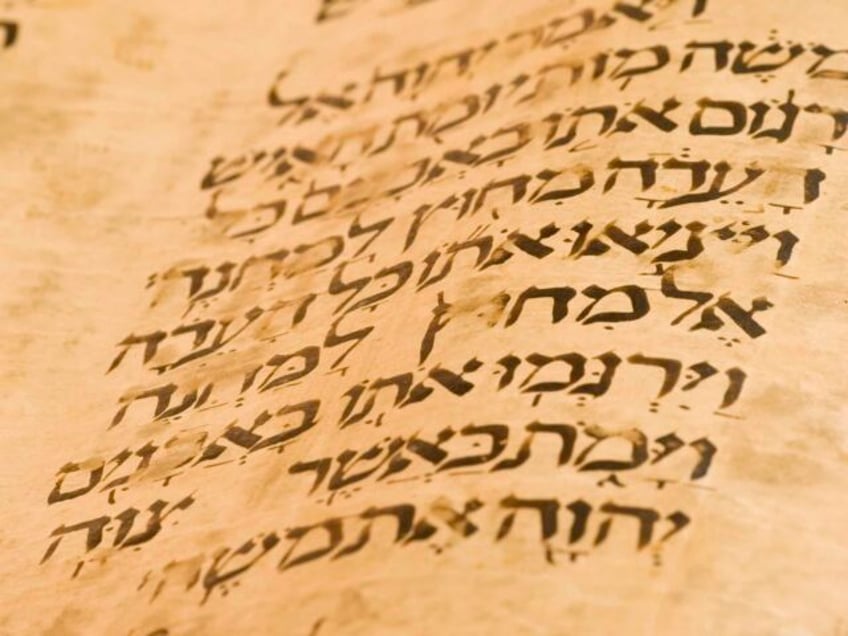 וַיֹּאמֶר יְהוָה אֶל
מֹשֶׁה מוֹת יוּמַת הָאִישׁ
רָגוֹם אֹתוֹ בָאֲבָנִים כָּל
הָעֵדָה מִחוּץ לַמַּחֲנֶה
וַיֹּצִיאוּ אֹתוֹ כָּל הָעֵדָה
אֶל מִחוּץ לַמַּחֲנֶה
וַיִּרְגְּמוּ אֹתוֹ בָּאֲבָנִים
וַיָּמֹת כַּאֲשֶׁר צִוָּה
יְהוָה אֶת מֹשֶׁה